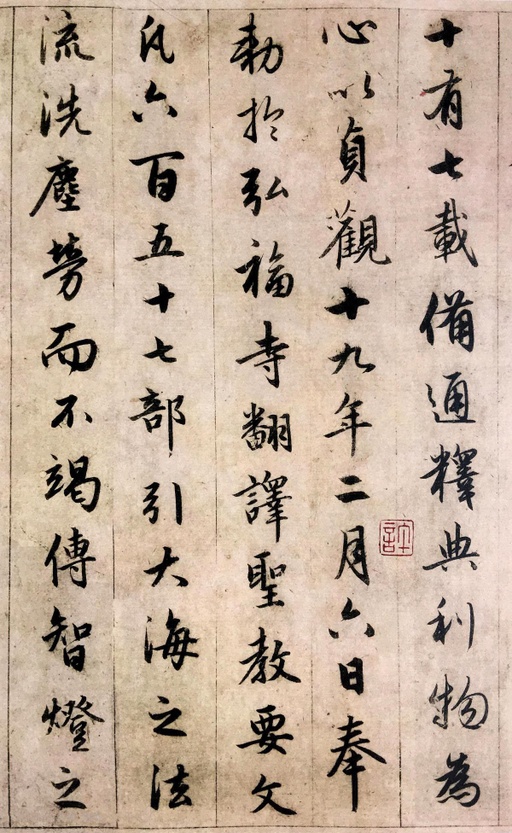 十有七載備通釋典利物為
心以貞觀十九年二月六日奉
勅於弘福寺翻譯聖教要文
凡六百五十七部引大海之法
流洗塵勞而不竭傳智燈之